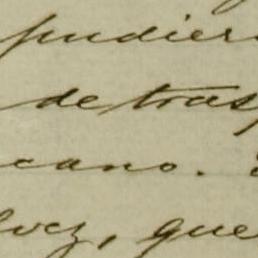 pudier
de tras
cano.
vez, que